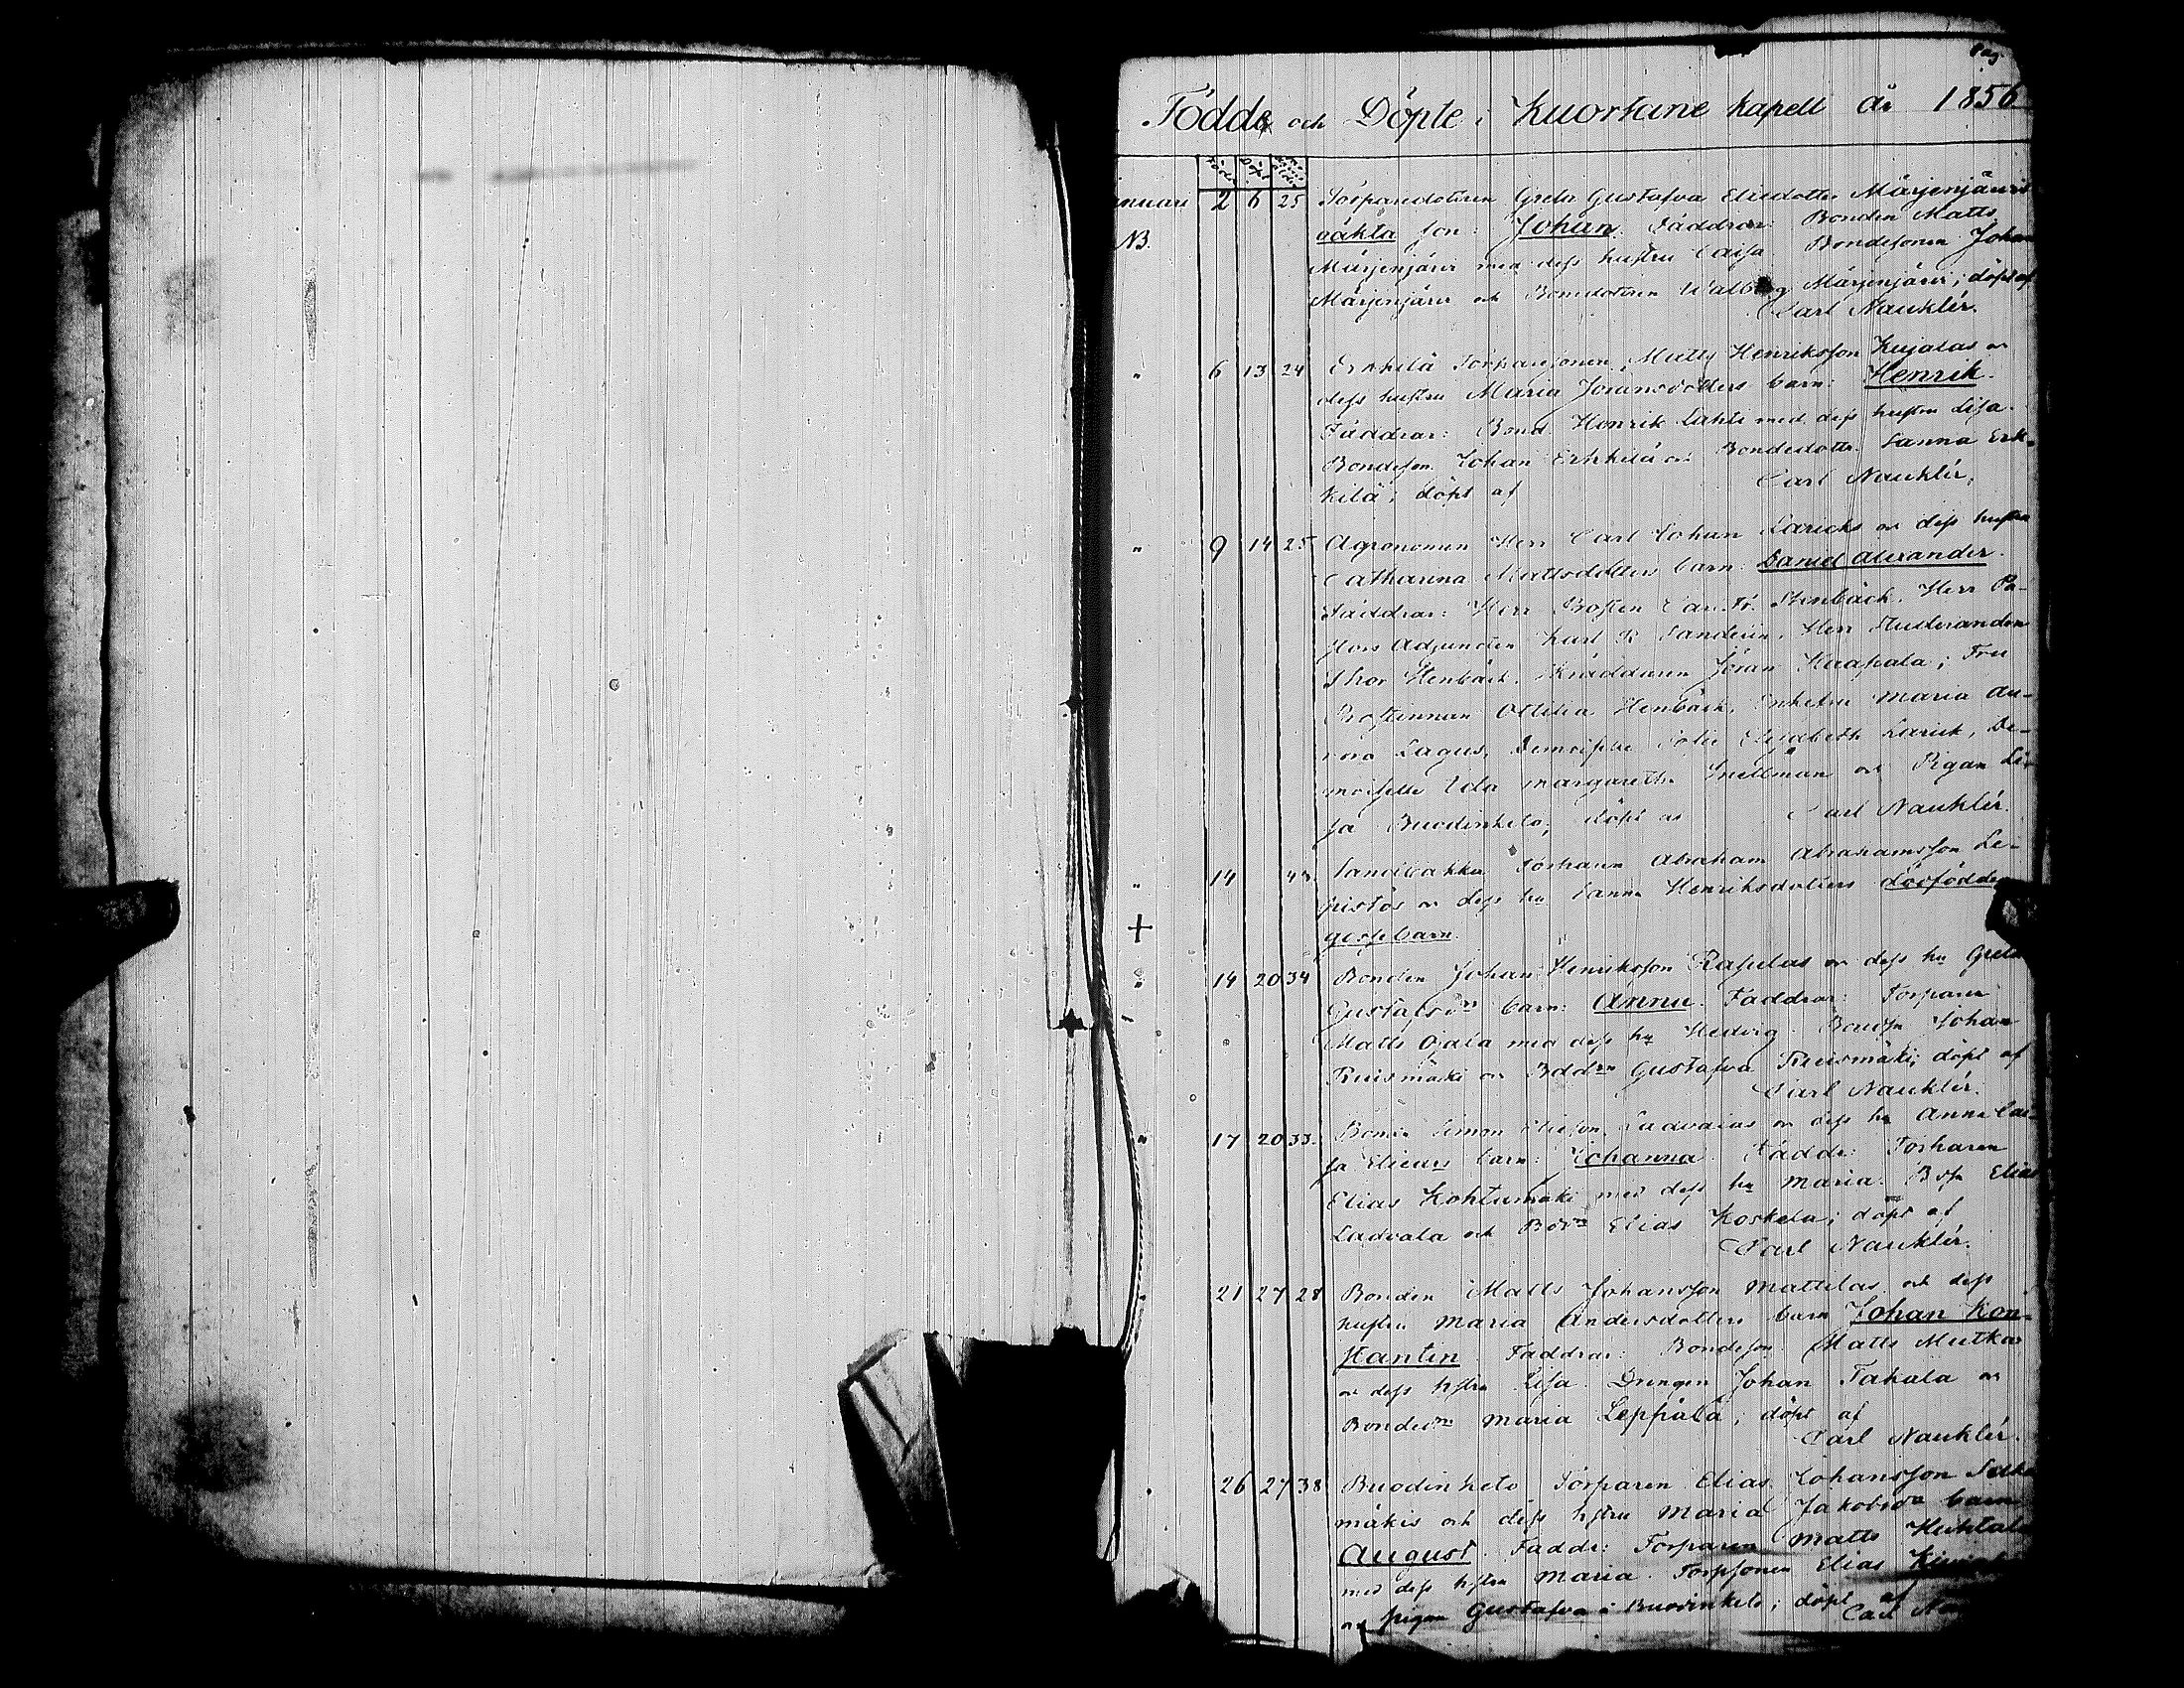 Pag.
Födde och Döpte i Kuortane Kapell år 1856
Född Döpt
Januari 2 6 25 Torparedotteren Greta Gustafva Eliedotter Märjenjärvis
NB. oäkta son: Johan. Fäddrar: Bonden Matts
Märjenjärvi med dess hustru Caisa. Bondesonen Johan
Märjenjärvi och Bonddotteren Walborg Märjenjärvi; döpt af
Carl Nauklér.
" 6 13 24 Erkkilä Torparesonen, Matts Henriksson Kujalas o
dess hustru Maria Joransdotters barn: Henrik.
Fäddrar: Bond. Henrik Lahti med dess hustru Lisa.
Bondeson. Johan Erkkilä o Bondedottr. Sanna Erk-
kilä; döpt af Carl Nauklér.
" 9 14 25 Agronomen Herr Carl Johan Laricks o dess hustru
Catharina Mattsdotters barn: Daniel Alexander.
Fäddrar: Herr Prosten Carl Fr. Stenbäck. Herr Pa-
stors Adjuncten Karl R. Sandelin. Herr Studeranden
Thor Stenbäck. Skräddaren Jöran Kaapala; Fru
Prostinnan Ottilia Stenbäck, Enkefru Maria Au-
rora Lagus, Demoiselle Sofie Elisabeth Larick, De-
moiselle Ida Margareth. Snellman och Pigan Li-
sa Buodinkelo; döpt af Carl Nauklér.
" 14 43. Torparen Abraham Abrahamsson Le-
pistös o dess hu Sanna Henriksdotters dödfödde
+ gossebarn.
" 14 20 34 Bonden Johan Henriksson Rapelas o dess hu Greta
Gustafsdrs barn: Anna. Faddrar: Torparen
Matts Ojala med dess hu Hedvig. Bondsn Johan
Ruismäki o Bddrn Gustafva Ruismäki; döpt af
Carl Nauklér.
" 17 20 33. Bonden Simon Eliesson Ladvalas o dess hu Anna Cai-
sa Eliedrs barn: Johanna. Fäddr: Torparen
Elias Kohtumäki med dess hu Maria. Bsn Elias
Ladvala och Bdrn Elias Koskela; döpt af
Carl Nauklér.
" 21 27 28 Bonden Matts Johansson Mattilas och dess
hustru Maria Andersdotters barn Johan Kon-
stantin. Faddrar: Bondeson. Matts Mutkar
o dess hstru Lisa. Drengen Johan Takala o
Bondedrn Maria Leppälä; döpt af
Carl Nauklér.
26 27 38 Buodinkelo Torparen Elias Johansson
mäkis och dess hstru Maria Jakobsdr barn
August. Fäddr: Torparen Matts Huhtala
med dess hstru Maria. Torpsonen Elias
och pigan Gustafva i Buodinkelo; döpt af
Carl